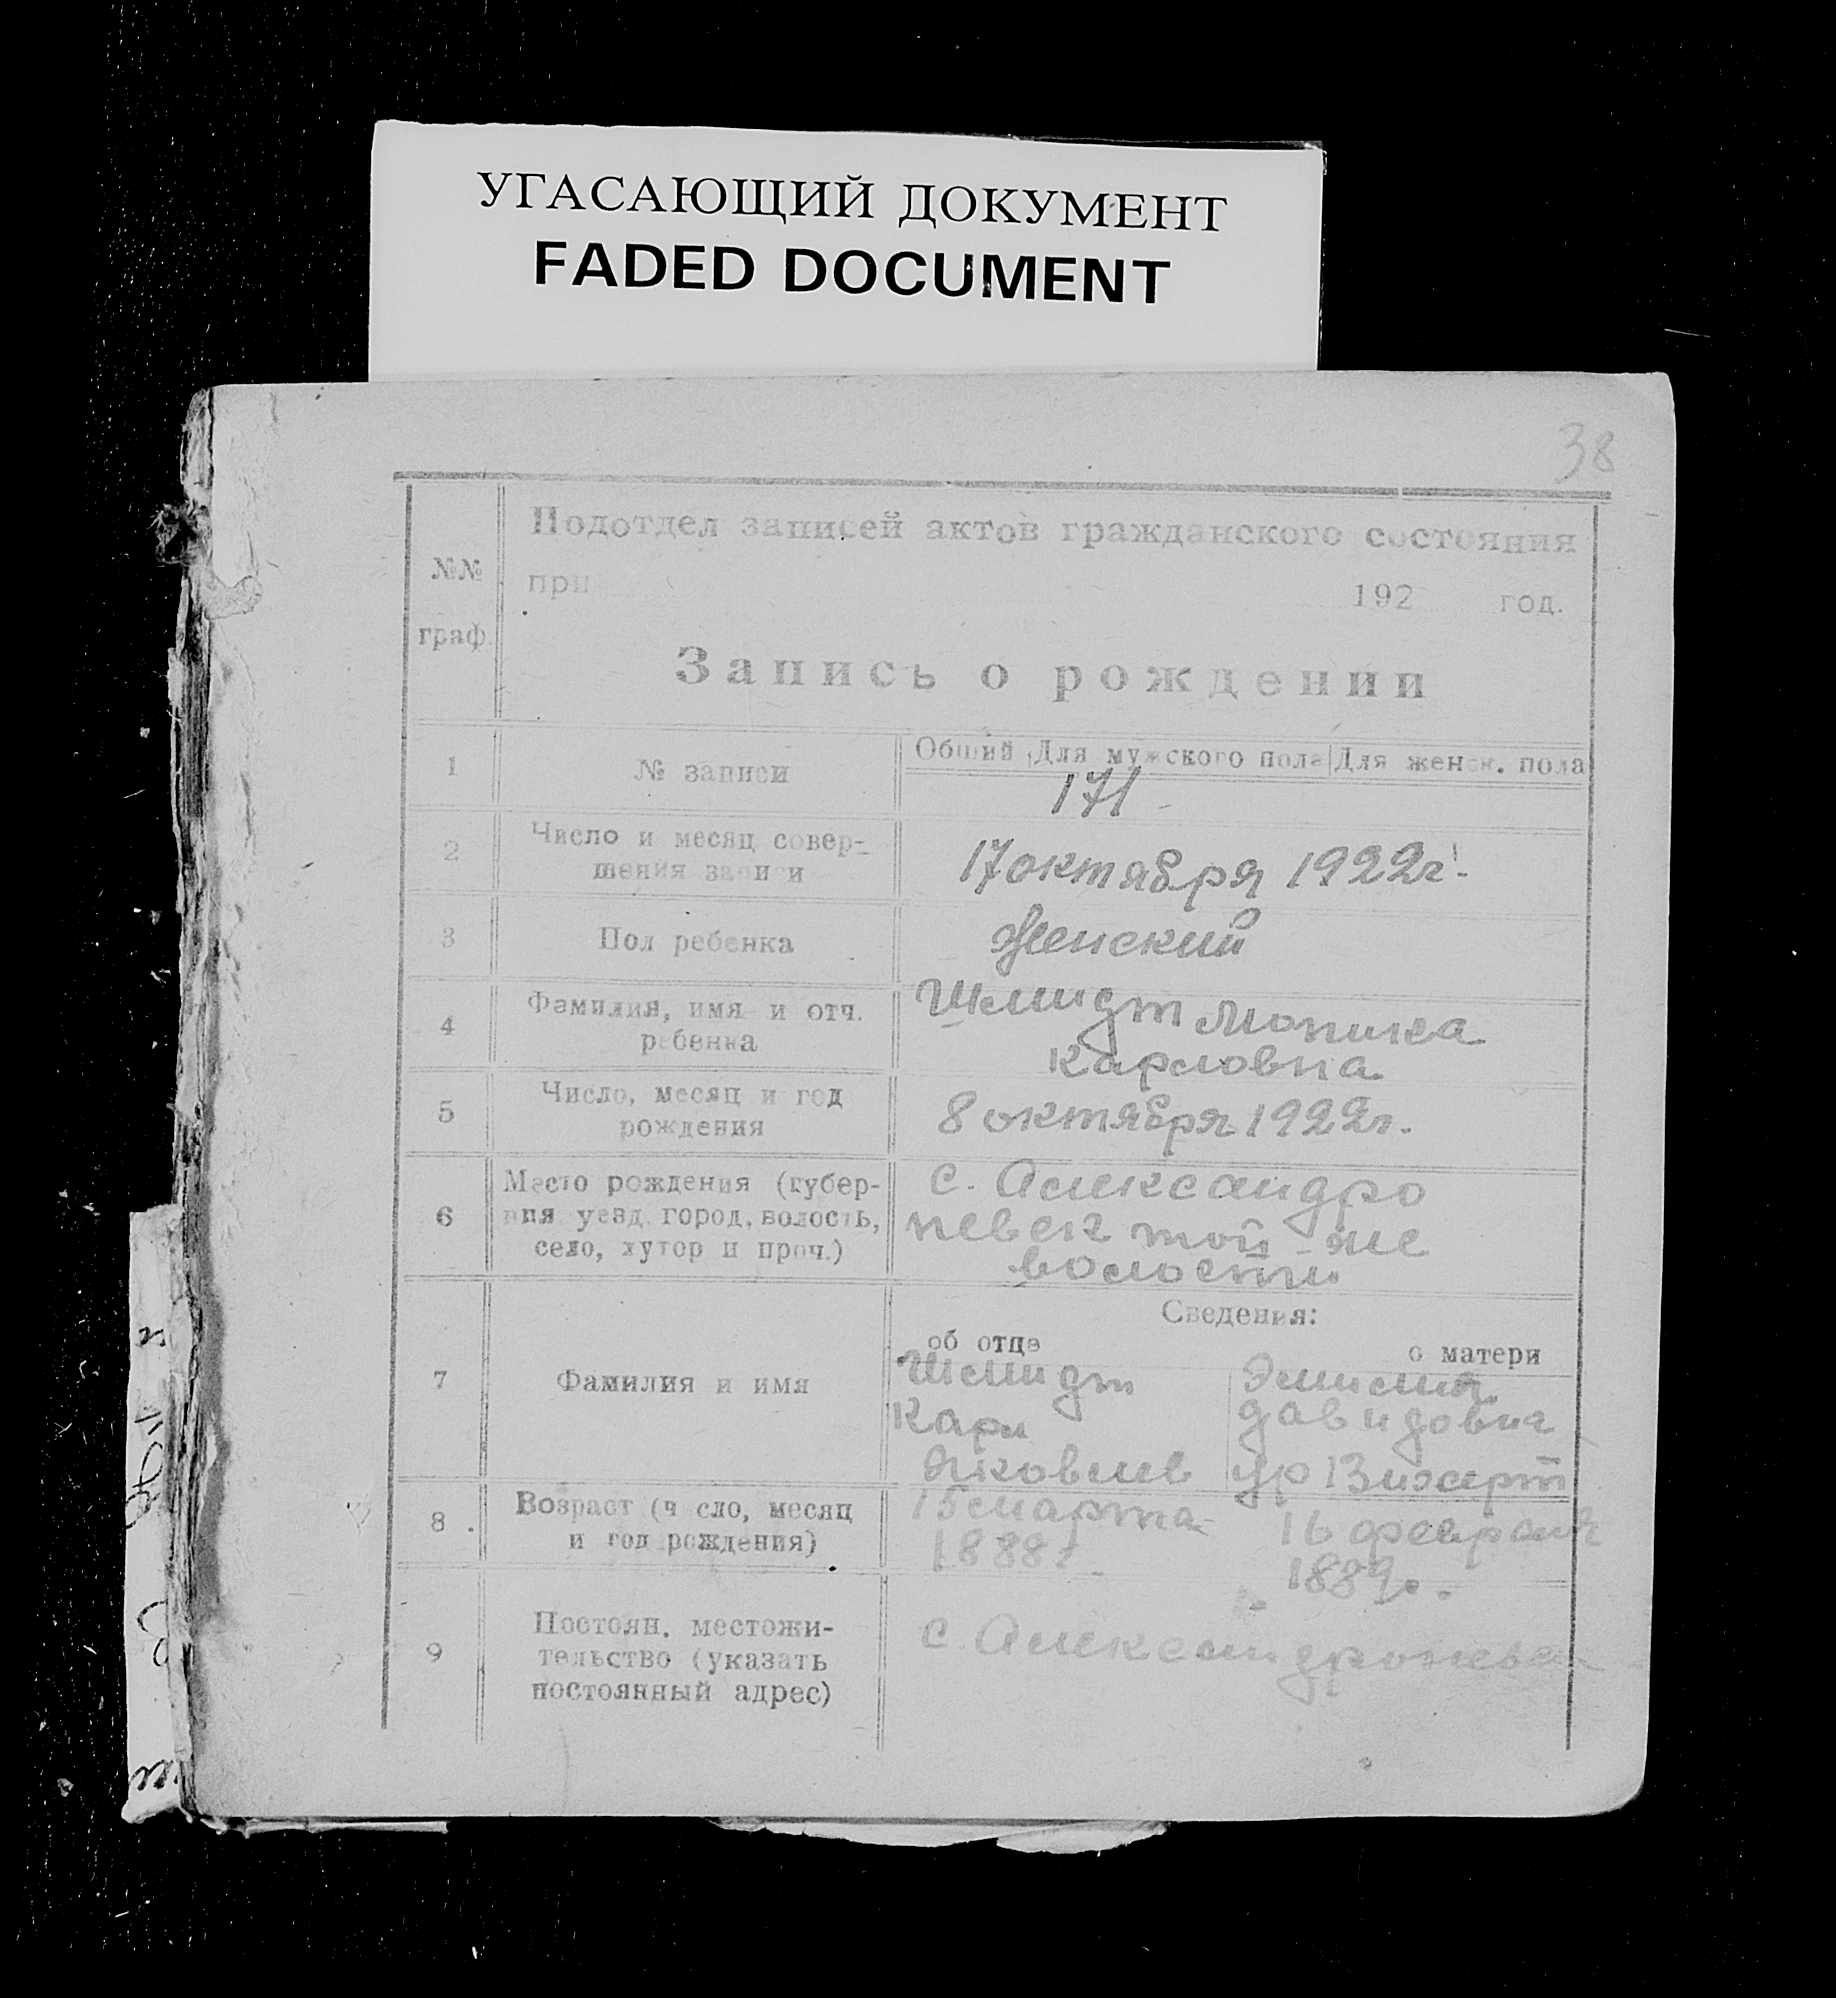 УГАСАЮЩИЙ ДОКУМЕНТ
FADED DOCUMENT
38
№№ граф.
Подотдел записей актов гражданского состояния
при 192 год.
Запись о рождении
1 № записи
Общий Для мужского пола Для женск. пола
171
2 Число и месяц совер-
шения записи
17 октября 1922г.
3 Пол ребенка Женский
4 Фамилия, имя и отч.
ребенка
Шмидт Моника
Карловна
5 Число, месяц и год
рождения
8 октября 1922г.
6 Место рождения (губер-
ния уезд. город, волость,
село, хутор и проч.)
с. Александро
невск той-же
волости
Сведения:
об отце о матери
7 Фамилия и имя
Шмидт
Карл
Яковлев
Эмилия
Давидовна
ур
8 Возраст (ч сло, месяц
и год рождения)
15 марта
1888г.
16 февраля
1889г.
9 Постоян. местожи-
тельство (указать
постоянный адрес)
с. Александроневск